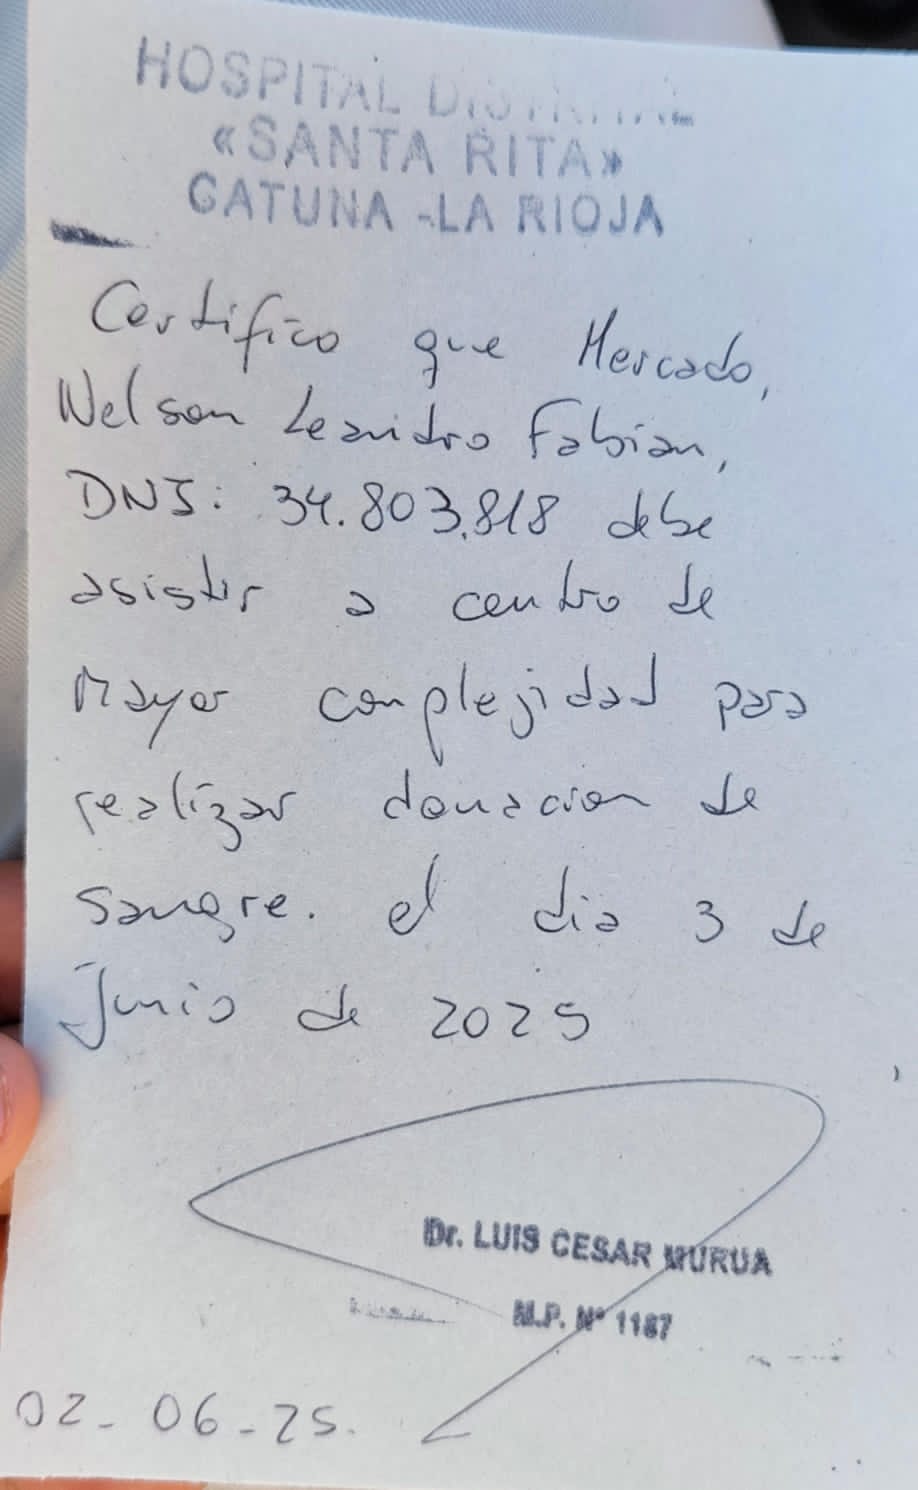 HOSPITAL DISTRITAL
«SANTA RITA»
CATUNA -LA RIOJA
Certifico que Mercado,
Nelson Leandro Fabian,
DNI: 34.803.818 debe
asistir a centro de
Mayor complejidad para
realizar donacion de
sangre. el dia 3 de
Junio de 2025
Dr. LUIS CESAR MURUA
M.P. N° 1187
02-06-25.